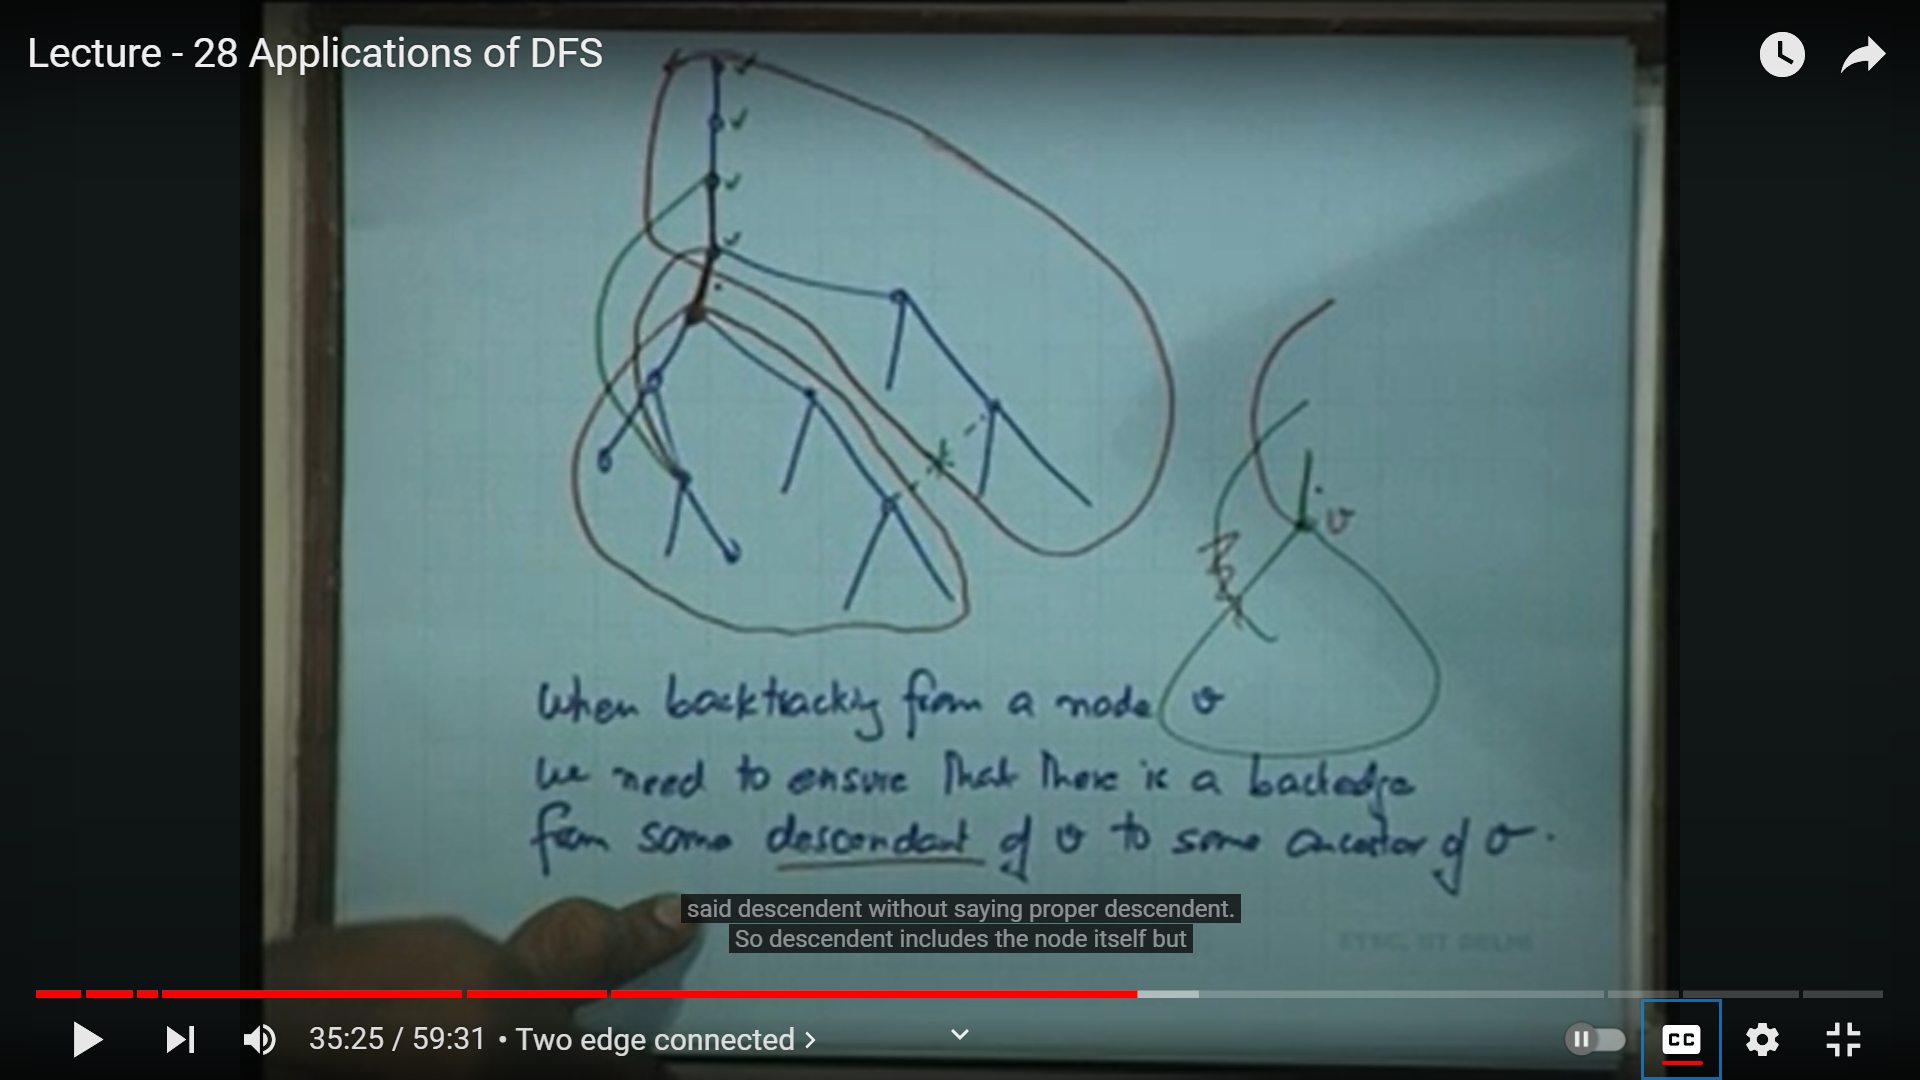 Lecture - 28 Applications of DFS
v
When backtracking from a node v
we need to ensure that there is a backedge
from some descendant of v to some ancestor of v.
said descendent without saying proper descendent.
So descendent includes the node itself but
ETSC, IIT DELHI
35:25 / 59:31 • Two edge connected >
CC